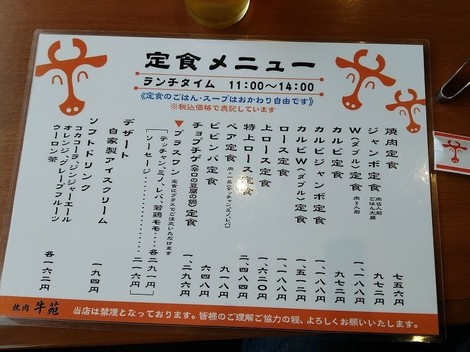 定食メニュー
ランチタイム 11:00～14:00
《定食のごはん・スープはおかわり自由です》
※税込価格で表記しています
焼肉定食 七五六円
ジャンボ定食 肉1.5人前 ごはん大盛 九七二円
W(ダブル)定食 肉2人前 一、一八八円
カルビ定食 九七二円
カルビジャンボ定食 一、一八八円
カルビW(ダブル)定食 一、五一二円
ロース定食 一、一八八円
上ロース定食 一、六二〇円
特上ロース定食 二、四八四円
ペア定食 肉・一品(テッチャン,ミノ,レバ) 九一八円
ビビンバ定食 六四八円
チョブチゲ(辛口の豆腐の鍋)定食 一、二九六円
▶プラスワン 定食にプラスでご注文いただけます
テッチャン、ミノ、レバ、若鶏モモ…各二九一円
ソーセージ……二一六円
デザート
自家製アイスクリーム 一九四円
ソフトドリンク
コカコーラ・ジンジャーエール
オレンジ・グレープフルーツ
ウーロン茶 各一六二円
焼肉 牛苑
当店は禁煙となっております。皆様のご理解ご協力の程、よろしくお願いいたします。